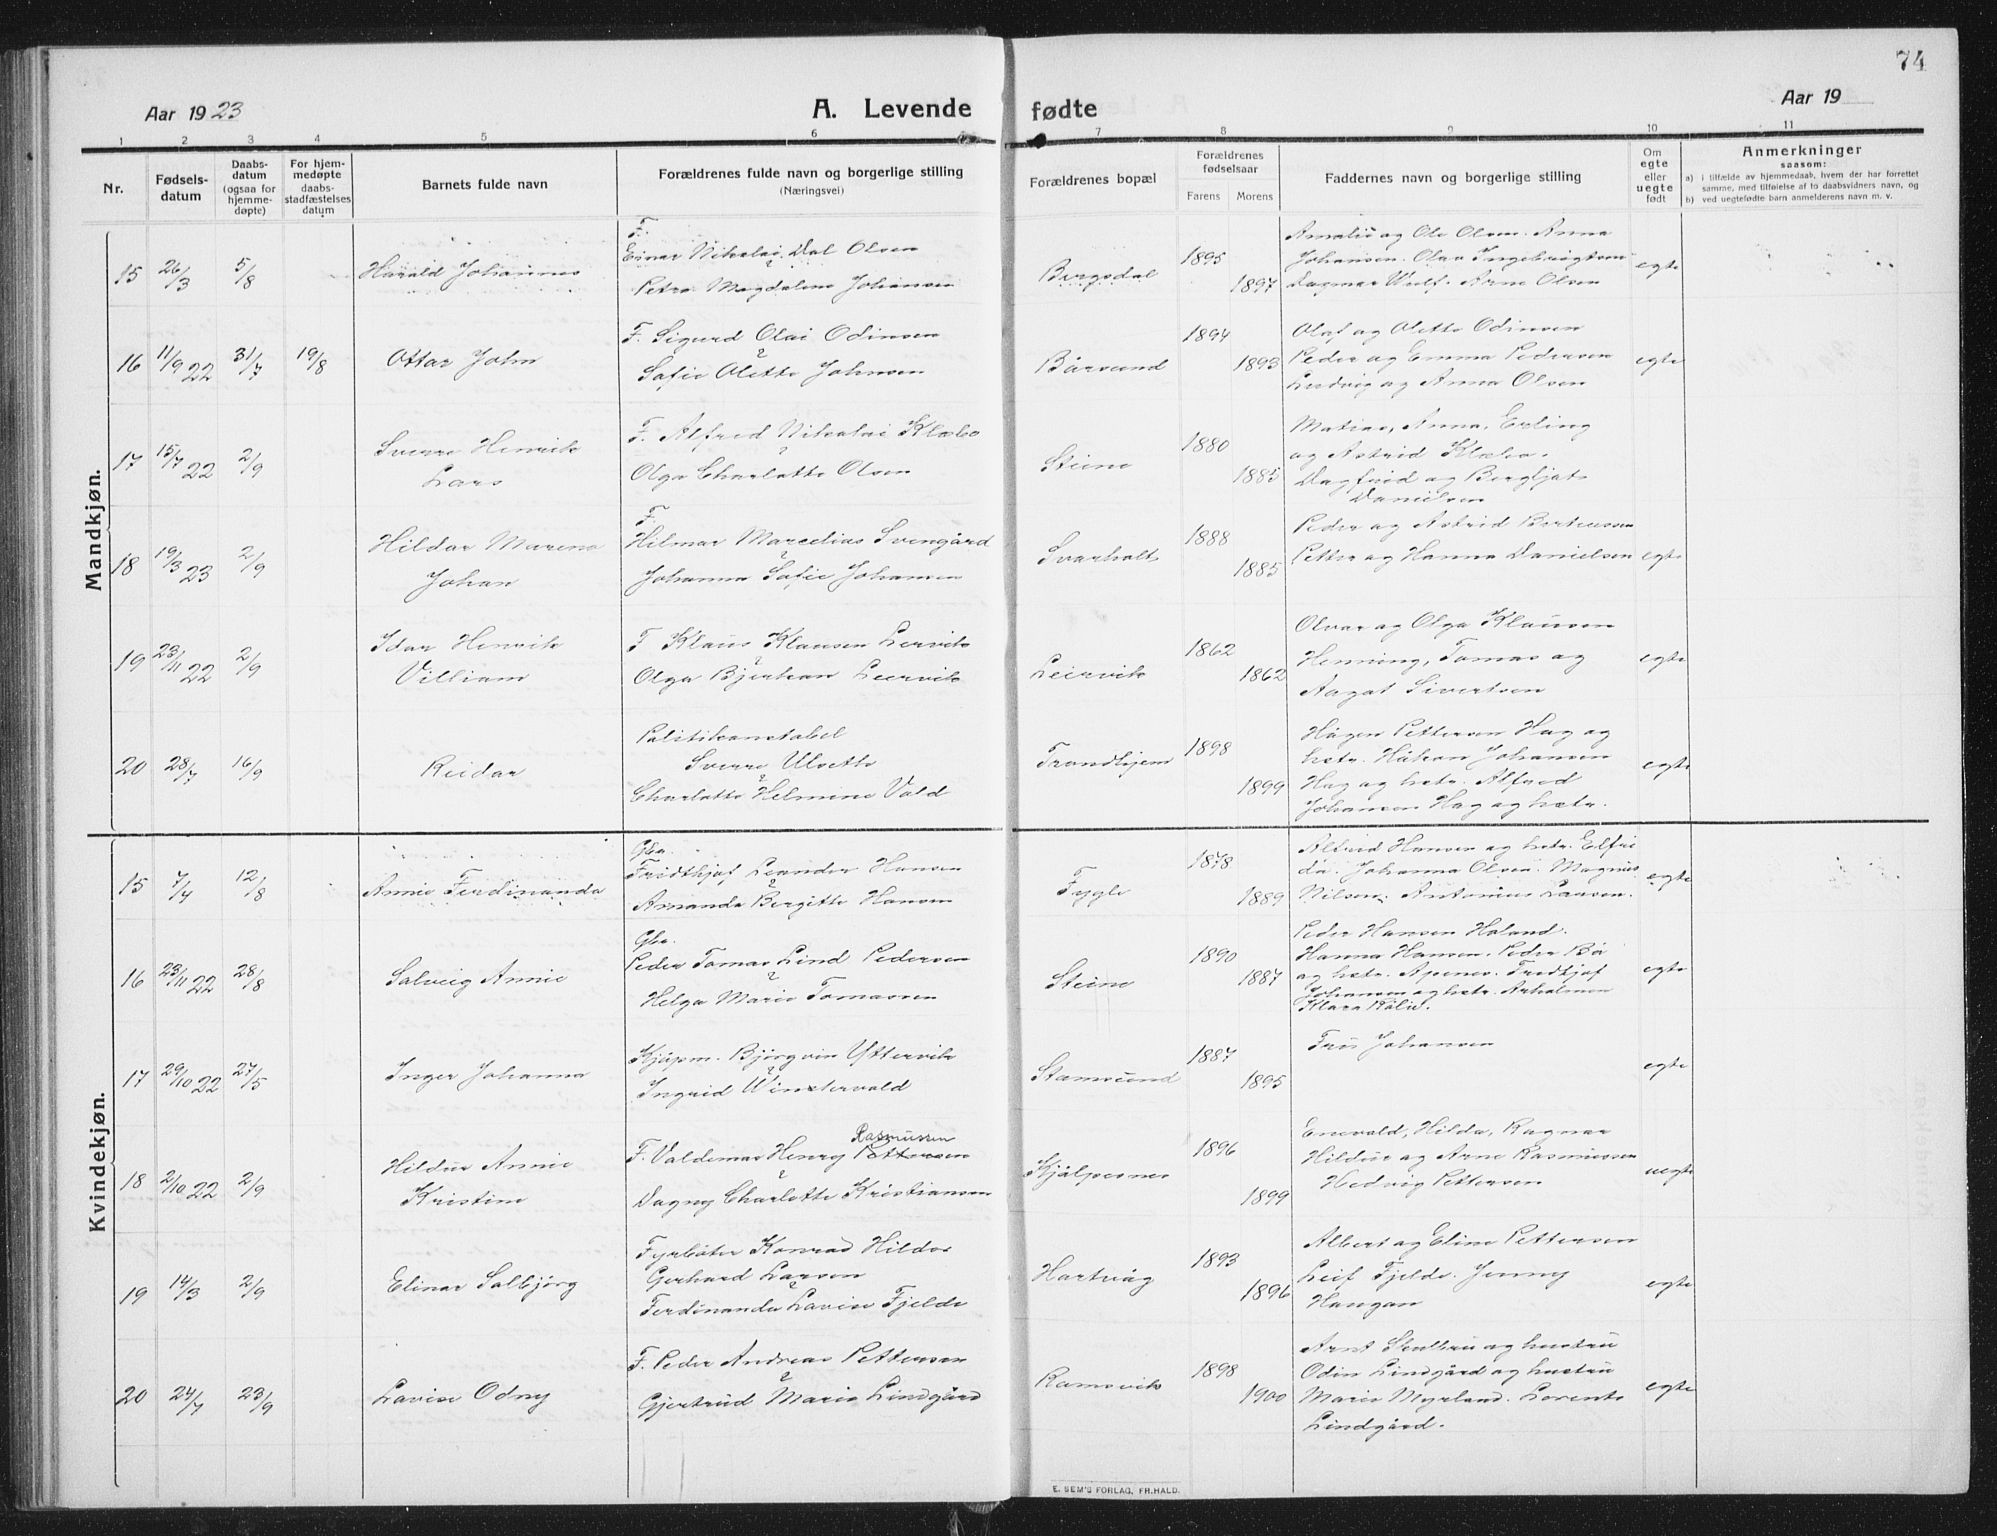 74
Aar 1923
A. Levende
fødte
Aar 19
1 2 3 4 5 6 7 8 9 10 11
Nr.
Fødsels-
datum
Daabs-
datum
(ogsaa for
hjemme-
døpte)
For hjem-
medøpte
daabs-
stadfæstelses
datum
Barnets fulde navn
Forældrenes fulde navn og borgerlige stilling
(Næringsvei)
Forældrenes bopæl
Forældrenes
fødselsaar
Farens Morens
Faddernes navn og borgerlige stilling
Om
egte
eller
uegte
født
Anmerkninger
saasom:
a) i tilfælde av hjemmedaab, hvem der har forrettet
samme, med tilføielse af to daabsvidners navn, og
b) ved uegtefødte barn anmelderens navn m. v.
Mandkjøn.
15 26/3 5/8 Harald Johannes
F.
Einar Nikolai Dal Olsen
&
Petra Magdalena Johansen
Borgsdal 1895 1897
Amalie og Ole Olsen. Anna
Johansen. Olav Ingebrigtsen
Dagmar Wulf. Arne Olsen
egte
16 11/9 22 31/7 19/8 Ottar John
F. Sigurd Olai Odinsen
&
Sofie Olette Johnsen
Börsund 1894 1893
Olaf og Olette Odinsen
Peder og Emma Pedersen
Ludvig og Anna Olsen
egte
17 15/7 22 2/9 Sverre Henrik
Lars
F. Alfred Nikolai Klæbo
&
Olga Charlotte Olsen
Steine 1880 1885
Matias, Anna, Erling
og Astrid Klæbo.
Dagfrid og Bergljot
Danielsen
18 19/3 23 2/9 Hildar Mareno
Johan
F.
Hilmar Marcelius Svengård
&
Johanna Sofie Johansen
Svarholt 1888 1885
Peder og Astrid Berteussen
Petter og Hanna Danielsen
egte
19 23/11 22 2/9 Idar Henrik
Villiam
F Klaus Klausen Lervik
&
Olga Bjerkan Leervik
Leirvik 1862 1862
Olvar og Olga Klausen
Henning, Tomas og
Aagot Sivertsen
egte
20 28/7 16/9 Reidar
Politikonstabel
Sverre Ulsette
&
Charlotte Helmine Vold
Trondhjem 1898 1899
Hågen Pettersen Hag og
hstr. Håkon Johansen
Hag og hstr. Alfred
Johansen Hag og hstr.
egte
Kvindekjøn.
15 7/4 12/8 Annie Ferdinanda
Gbr.
Fridthjof Leander Hansen
&
Amanda Bergitte Hansen
Fygle 1878 1889
Alfrid Hansen og hstr. Elfri
da. Johanna Olsen. Magnus
Nilsen. Antonius Laasen.
egte
16 23/11 22 28/8 Solveig Annie
Gbr.
Peder Tomas Lind Pedersen
&
Helga Marie Tomassen
Steine 1890 1887
Peder Hansen Holand.
Hanna Hansen. Peder Bö
og hstr. Apenes. Fredthjof
Johansen og hstr.
Klara
egte
17 29/10 22 27/5 Inger Johanna
Kjöpm. Björgvin Yttervik
&
Ingrid Winstervold
Stamsund 1887 1895
Fru Johansen
egte
18 2/10 22 2/9 Hildur Annie
Kristine
Rasmussen
F. Valdemar Henry Pettersen
&
Dagny Charlotte Kristiansen
Kjålpesnes 1896 1899
Enevald, Hilda, Ragnar
Hildur og Arne Rasmussen
Hedvig Pettersen
uegte
19 14/3 2/9 Elinar Solbjörg
Fyrböter Konrad Hildor
Gerhard Larsen
&
Ferdinanda Lovise Fjelde
Hartvåg 1893 1896
Albert og Eline Pettersen
Leif Fjelde. Jenny
Haugan
egte
20 24/7 23/9 Lovise Odny
F. Peder Andreas Pettersen
&
Gjertrud Marie Lindgård
Ramsvik 1898 1900
Arnt Skulbru og hustru
Odin Lindgård og hustru
Marie Myrland. Lorents
Lindgård.
egte
E. SEM'S FORLAG, FR.HALD.